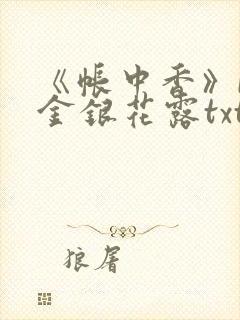 《帐中香》
金银花露txt
狼屠